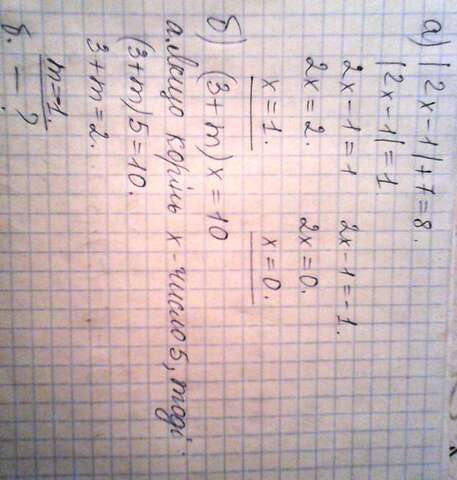 а) |2x-1|+7=8.
|2x-1|=1.
2x-1=1 2x-1=-1.
2x=2. 2x=0.
x=1. x=0.
б) (3+m)x=10
а. якщо корінь x-число 5, тоді:
(3+m)5=10.
3+m=2.
m=-1.
б. — ?